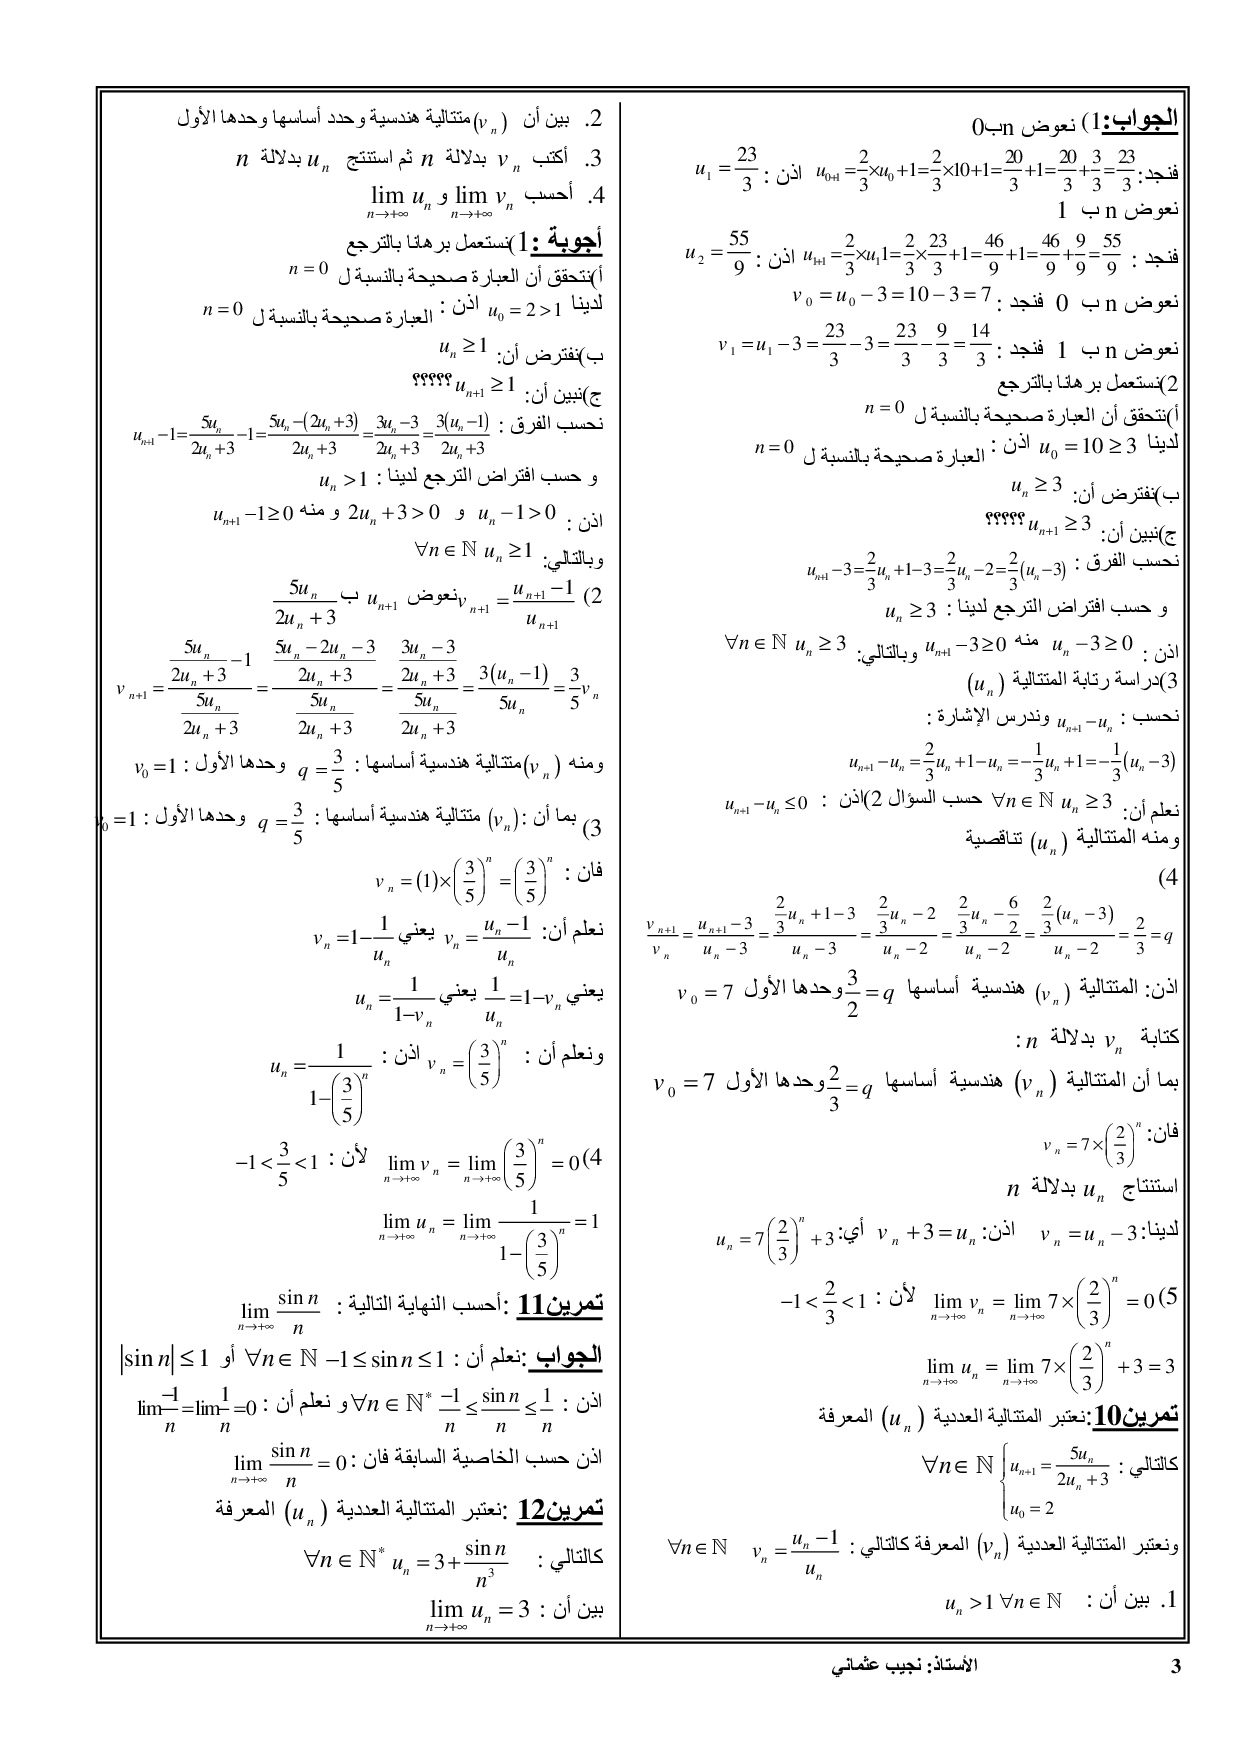 الجواب:1) نعوض nب0
فنجد: u_{0+1} = 2/3 × u_0 + 1 = 2/3 × 10 + 1 = 20/3 + 1 = 20/3 + 3/3 = 23/3 اذن : u_1 = 23/3
نعوض n ب 1
فنجد : u_{1+1} = 2/3 × u_1 1 = 2/3 × 23/3 + 1 = 46/9 + 1 = 46/9 + 9/9 = 55/9 اذن : u_2 = 55/9
نعوض n ب 0 فنجد : v_0 = u_0 − 3 = 10 − 3 = 7
نعوض n ب 1 فنجد : v_1 = u_1 − 3 = 23/3 − 3 = 23/3 − 9/3 = 14/3
2)نستعمل برهانا بالترجع
أ)نتحقق أن العبارة صحيحة بالنسبة ل n = 0
لدينا u_0 = 10 ≥ 3 اذن : العبارة صحيحة بالنسبة ل n = 0
ب)نفترض أن: u_n ≥ 3
ج)نبين أن: u_{n+1} ≥ 3 ؟؟؟؟؟
نحسب الفرق : u_{n+1} − 3 = 2/3 u_n + 1 − 3 = 2/3 u_n − 2 = 2/3 (u_n − 3)
و حسب افتراض الترجع لدينا : u_n ≥ 3
اذن : u_n − 3 ≥ 0 منه u_{n+1} − 3 ≥ 0 وبالتالي: ∀n ∈ ℕ u_n ≥ 3
3)دراسة رتابة المتتالية (u_n)
نحسب : u_{n+1} − u_n وندرس الإشارة :
u_{n+1} − u_n = 2/3 u_n + 1 − u_n = −1/3 u_n + 1 = −1/3 (u_n − 3)
نعلم أن: ∀n ∈ ℕ u_n ≥ 3 حسب السؤال 2)اذن : u_{n+1} − u_n ≤ 0
ومنه المتتالية (u_n) تناقصية
4)
v_{n+1}/v_n = (u_{n+1} − 3)/(u_n − 3) = (2/3 u_n + 1 − 3)/(u_n − 3) = (2/3 u_n − 2)/(u_n − 2) = (2/3 u_n − 6/2)/(u_n − 2) = (2/3 (u_n − 3))/(u_n − 2) = 2/3 = q
اذن: المتتالية (v_n) هندسية أساسها q = 3/2 وحدها الأول v_0 = 7
كتابة v_n بدلالة n :
بما أن المتتالية (v_n) هندسية أساسها q = 2/3 وحدها الأول v_0 = 7
فان: v_n = 7 × (2/3)^n
استنتاج u_n بدلالة n
لدينا: v_n = u_n − 3 اذن: v_n + 3 = u_n أي: u_n = 7(2/3)^n + 3
5) lim_{n→+∞} v_n = lim_{n→+∞} 7 × (2/3)^n = 0 لأن : −1 < 2/3 < 1
lim_{n→+∞} u_n = lim_{n→+∞} 7 × (2/3)^n + 3 = 3
تمرين10:نعتبر المتتالية العددية (u_n) المعرفة
كالتالي : { u_{n+1} = 5u_n/(2u_n + 3) ; u_0 = 2 ∀n ∈ ℕ
ونعتبر المتتالية العددية (v_n) المعرفة كالتالي : v_n = (u_n − 1)/u_n ∀n ∈ ℕ
1. بين أن : u_n > 1 ∀n ∈ ℕ
2. بين أن (v_n) متتالية هندسية وحدد أساسها وحدها الأول
3. أكتب v_n بدلالة n ثم استنتج u_n بدلالة n
4. أحسب lim_{n→+∞} v_n و lim_{n→+∞} u_n
أجوبة :1)نستعمل برهانا بالترجع
أ)نتحقق أن العبارة صحيحة بالنسبة ل n = 0
لدينا u_0 = 2 > 1 اذن : العبارة صحيحة بالنسبة ل n = 0
ب)نفترض أن: u_n ≥ 1
ج)نبين أن: u_{n+1} ≥ 1 ؟؟؟؟؟
نحسب الفرق : u_{n+1} − 1 = 5u_n/(2u_n + 3) − 1 = (5u_n − (2u_n + 3))/(2u_n + 3) = (3u_n − 3)/(2u_n + 3) = 3(u_n − 1)/(2u_n + 3)
و حسب افتراض الترجع لدينا : u_n > 1
اذن : u_n − 1 > 0 و 2u_n + 3 > 0 و منه u_{n+1} − 1 ≥ 0
وبالتالي: ∀n ∈ ℕ u_n ≥ 1
2) v_{n+1} = (u_{n+1} − 1)/u_{n+1} نعوض u_{n+1} ب 5u_n/(2u_n + 3)
v_{n+1} = (5u_n/(2u_n + 3) − 1)/(5u_n/(2u_n + 3)) = ((5u_n − 2u_n − 3)/(2u_n + 3))/(5u_n/(2u_n + 3)) = ((3u_n − 3)/(2u_n + 3))/(5u_n/(2u_n + 3)) = 3(u_n − 1)/5u_n = 3/5 v_n
ومنه (v_n) متتالية هندسية أساسها : q = 3/5 وحدها الأول : v_0 = 1
3) بما أن : (v_n) متتالية هندسية أساسها : q = 3/5 وحدها الأول : v_0 = 1
فان : v_n = (1) × (3/5)^n = (3/5)^n
نعلم أن: v_n = (u_n − 1)/u_n يعني v_n = 1 − 1/u_n
يعني 1/u_n = 1 − v_n يعني u_n = 1/(1 − v_n)
ونعلم أن : v_n = (3/5)^n اذن : u_n = 1/(1 − (3/5)^n)
4) lim_{n→+∞} v_n = lim_{n→+∞} (3/5)^n = 0 لأن : −1 < 3/5 < 1
lim_{n→+∞} u_n = lim_{n→+∞} 1/(1 − (3/5)^n) = 1
تمرين11 :أحسب النهاية التالية : lim_{n→+∞} sin n / n
الجواب :نعلم أن : −1 ≤ sin n ≤ 1 ∀n ∈ ℕ أو |sin n| ≤ 1
اذن : −1/n ≤ sin n / n ≤ 1/n ∀n ∈ ℕ* و نعلم أن : lim −1/n = lim 1/n = 0
اذن حسب الخاصية السابقة فان : lim_{n→+∞} sin n / n = 0
تمرين12 :نعتبر المتتالية العددية (u_n) المعرفة
كالتالي : u_n = 3 + sin n / n^3 ∀n ∈ ℕ*
بين أن : lim_{n→+∞} u_n = 3
الأستاذ: نجيب عثماني
3